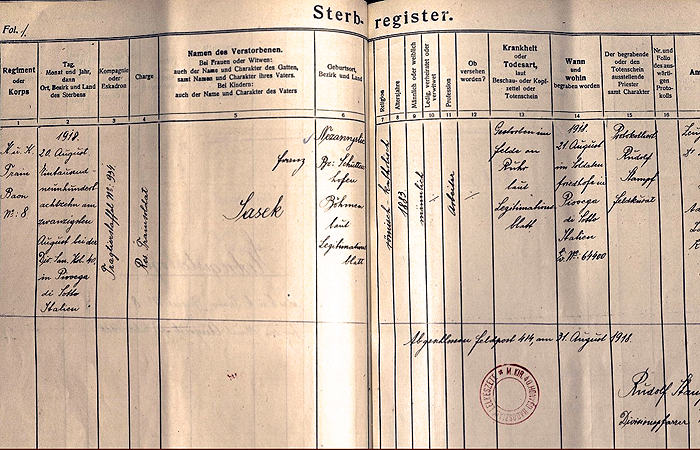 Sterb-register.
Fol. 1
Regiment
oder
Korps
Tag,
Monat und Jahr,
dann
Ort, Bezirk und Land
des Sterbens
Kompagnie
oder
Eskadron
Charge
Namen des Verstorbenen.
Bei Frauen oder Witwen:
auch der Name und Charakter des Gatten,
samt Namen und Charakter ihres Vaters.
Bei Kindern:
auch der Name und Charakter des Vaters
Geburtsort,
Bezirk und Land
Religion
Altersjahre
Männlich oder weiblich
Ledig, verheiratet oder
verwitwet
Profession
Ob
versehen
worden?
Krankheit
oder
Todesart,
laut
Beschau- oder Kopf-
zettel oder
Totenschein
Wann
und
wohin
begraben worden
Der begrabende oder
den Totenschein
ausstellende
Priester
samt Charakter
Nr. und Folio
des aus-
wärtigen
Proto-
kolls
1 2 3 4 5 6 7 8 9 10 11 12 13 14 15 16
K.u.K.
Train
Baon
Nr: 8
1918.
20. August
Eintausend-
neunhundert
achtzehn am
zwanzigsten
August bei der
Div. San. Kol. 40,
in Piovega
di Sotto
Italien
Nr. 934
Res. Trainsoldat
Franz
Sasek
Bz: Schütten-
hofen
Böhmen
laut
Legitimations
blatt
römisch-katholisch
1883.
männlich
÷
Arbeiter
÷
Gestorben im
Felde an
Ruhr
laut
Legitimations
blatt
1918.
21 August
im Soldaten
friedhofe in
Piovega
di Sotto
Italien
Ev. Nr: 64400
Rudolf
Stampf
Feldkurat
Abgeschlossen Feldpost 414, am 31. August 1918.
Rudolf
Divisionspfarrer